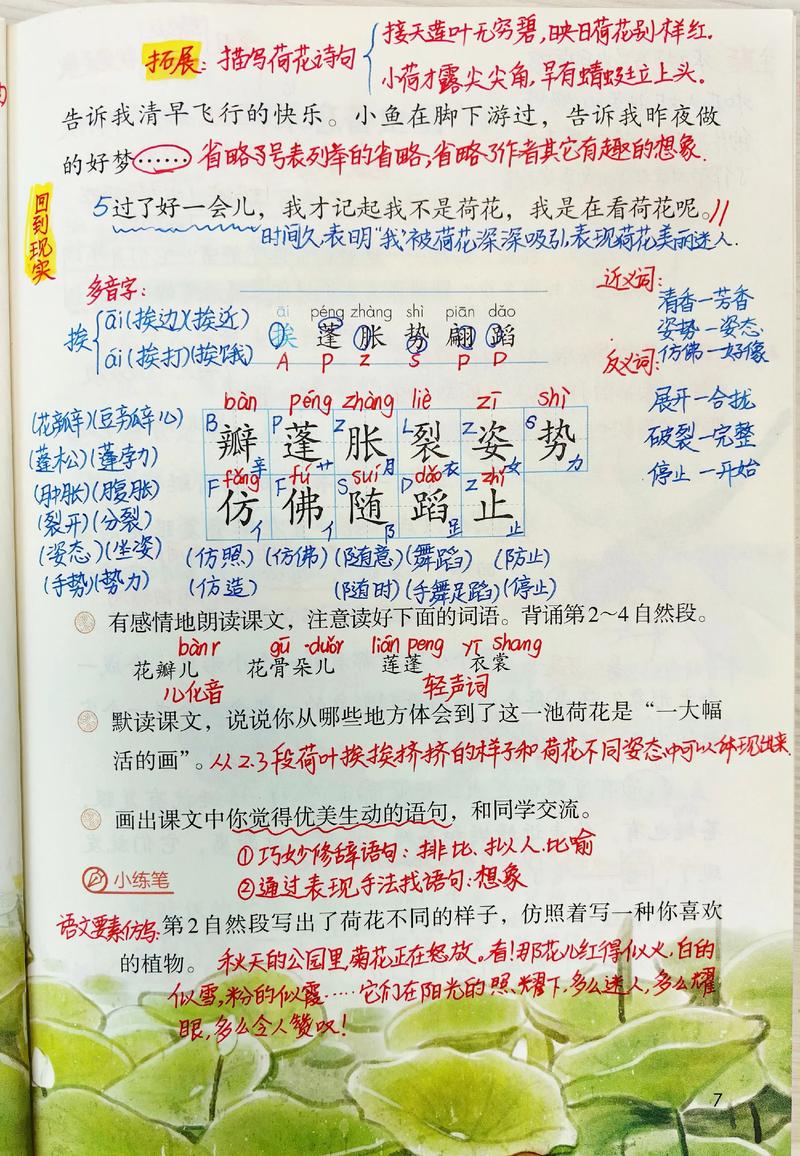 接天莲叶无穷碧,映日荷花别样红.
拓展: 描写荷花诗句
小荷才露尖尖角,早有蜻蜓立上头.
告诉我清早飞行的快乐。小鱼在脚下游过，告诉我昨夜做
的好梦…… 省略号表列举的省略,省略了作者其它有趣的想象.
回到现实
5过了好一会儿，我才记起我不是荷花，我是在看荷花呢。//
时间久,表明"我"被荷花深深吸引,表现荷花美丽迷人.
多音字:
挨
āi(挨边)(挨近)
ái(挨打)(挨饿)
āi péng zhàng shì piān dǎo
挨 蓬 胀 势 翩 蹈
A P Z S P D
近义词:
清香—芳香
姿势—姿态
仿佛—好像
反义词:
展开—合拢
破裂—完整
停止—开始
(花瓣)(豆瓣儿)
(蓬松)(蓬勃)
(肿胀)(腹胀)
(裂开)(分裂)
(姿态)(坐姿)
(手势)(势力)
bàn péng zhàng liè zī shì
B P Z L Z S
瓣 蓬 胀 裂 姿 势
辛 艹 月 衣 女 力
fǎng fú suí dǎo zhǐ
F F S D Z
仿 佛 随 蹈 止
亻 亻 阝 𧾷 止
(仿照) (仿佛) (随意) (舞蹈) (防止)
(仿造) (随时) (手舞足蹈) (停止)
有感情地朗读课文，注意读好下面的词语。背诵第2～4自然段。
bànr gū·duǒr lián peng yī shang
花瓣儿 花骨朵儿 莲蓬 衣裳
儿化音 轻声词
默读课文，说说你从哪些地方体会到了这一池荷花是“一大幅
活的画”。从2.3段荷叶挨挨挤挤的样子和荷花不同姿态中可以体现出来.
画出课文中你觉得优美生动的语句，和同学交流。
①巧妙修辞语句: 排比、拟人.比喻
②通过表现手法找语句:想象
小练笔
语文要素仿写: 第2自然段写出了荷花不同的样子，仿照着写一种你喜欢
的植物。 秋天的公园里,菊花正在怒放。看!那花儿红得似火,白的
似雪,粉的似霞……它们在阳光的照耀下,多么迷人,多么耀
眼,多么令人赞叹!
7